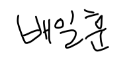 배일훈